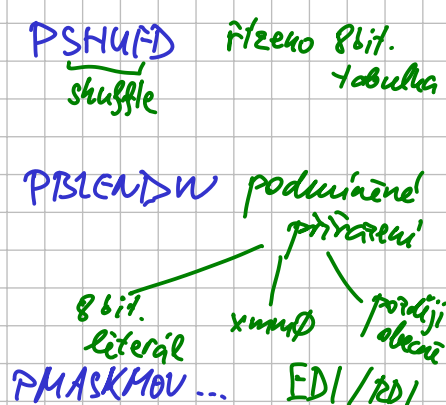 PSHUFD řízeno 8bit.
tabulka
shuffle
PBLENDW podmíněné
přiřazení
8 bit. xmm0 později
literál obecně
PMASKMOV ... EDI/RDI